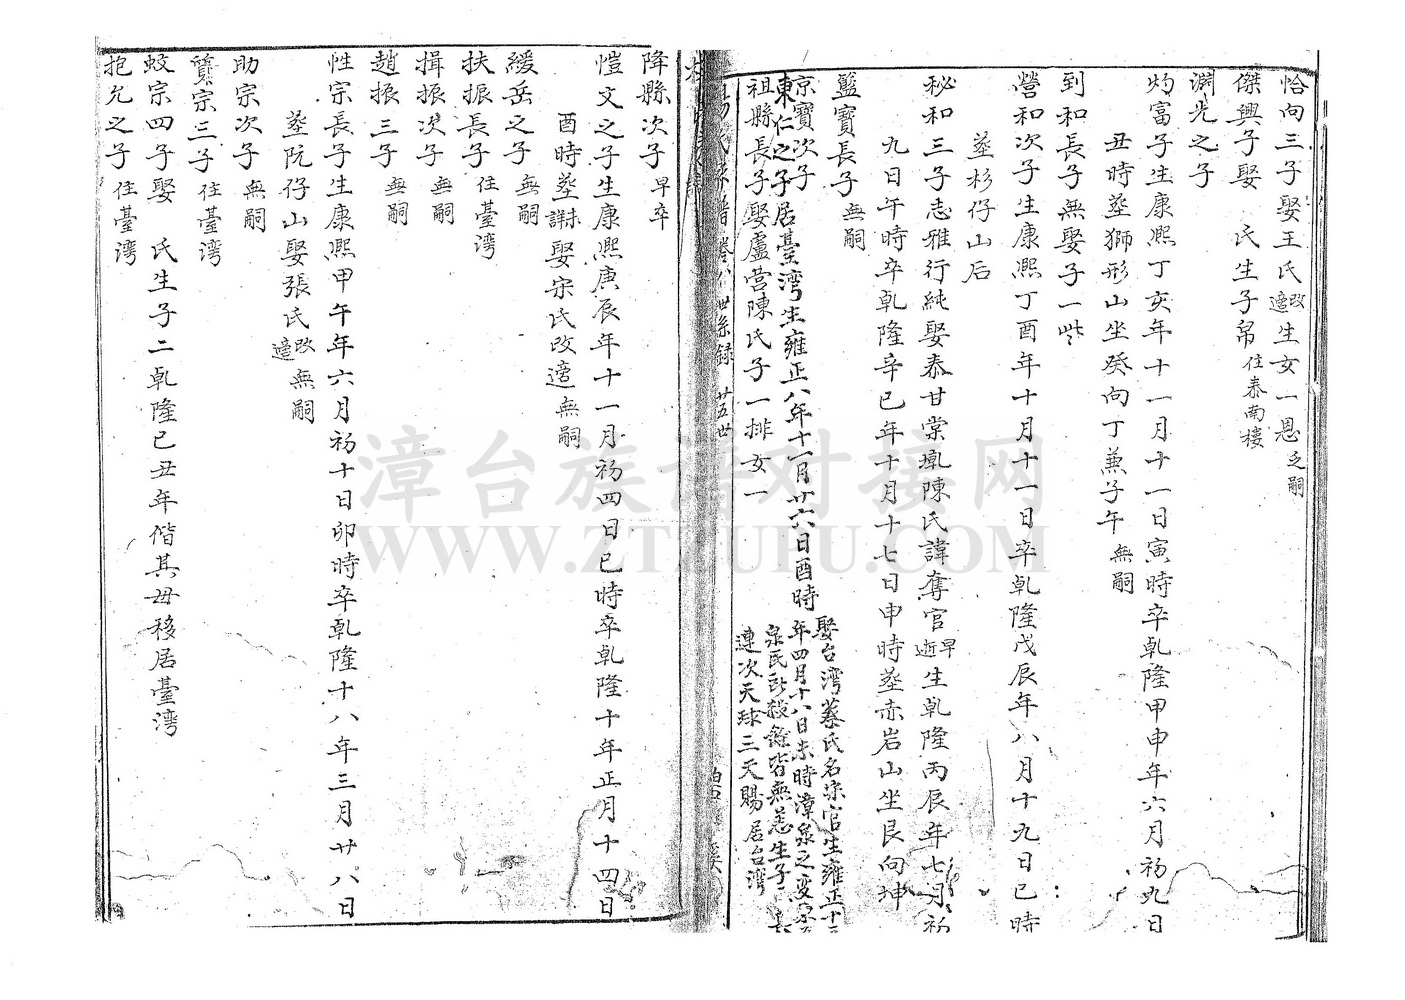 恰向三子娶王氏改適生女一恩乏嗣
傑興子娶 氏生子帛住泰南樓
淵光之子
灼富子生康熙丁亥年十一月十一日寅時卒乾隆甲申年六月初九日
丑時塟獅形山坐癸向丁兼子午無嗣
到和長子無娶子一些
營和次子生康熙丁酉年十月十一日卒乾隆戊辰年八月十九日巳時
塟杉仔山后
秘和三子志雅行純娶泰甘棠墘陳氏諱奪官早逝生乾隆丙辰年七月初
九日午時卒乾隆辛巳年十月十七日申時塟赤岩山坐艮向坤
盬寶長子無嗣
京寶次子
東仁之子居臺灣生雍正八年十一月廿六日酉時娶台灣蔡氏名 官生雍正十三
年四月十八日未時漳泉之变
泉民 殺 皆無 生子
連次天球三天賜居台灣
祖縣長子娶盧营陳氏子一排女一
楊氏 譜卷八世系錄 廿五世
降縣次子早卒
愷文之子生康熙庚辰年十一月初四日巳時卒乾隆十年正月十四日
酉時塟未詳娶宋氏改適無嗣
緩岳之子無嗣
扶振長子住臺灣
揖振次子無嗣
趙振三子無嗣
性宗長子生康熙甲午年六月初十日卯時卒乾隆十八年三月廿八日
塟阮仔山娶張氏改適無嗣
助宗次子無嗣
寶宗三子住臺灣
蚊宗四子娶 氏生子二乾隆己丑年偕其母移居臺灣
抱允之子住臺灣
漳台族谱对接网
WWW.ZTZUPU.COM